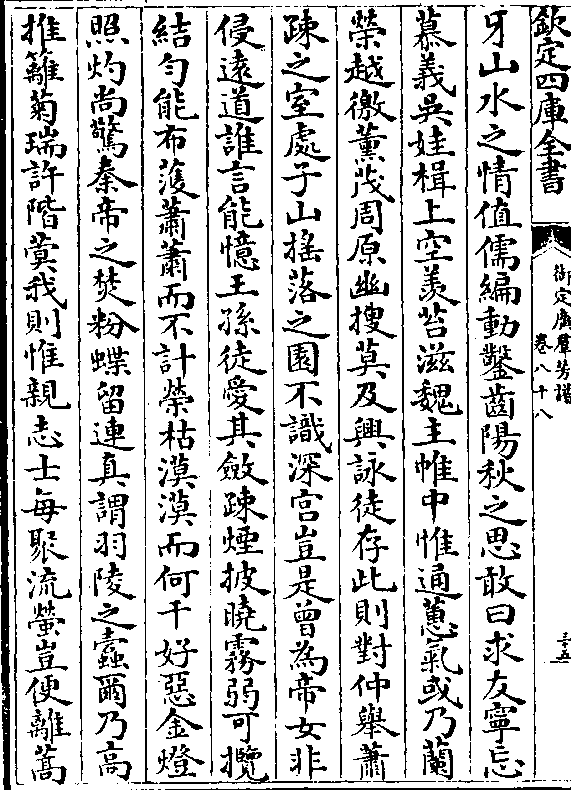 欽定四庫全書
御定廣羣芳譜
卷八十八
三十五
牙山水之情值儒編動鑿齒陽秋之思敢曰求友寧忘
慕義吳娃楫上空羨苔滋魏主帷中惟通蕙氣或乃蘭
榮越徼薰茂周原幽搜莫及興詠徒存此則對仲舉蕭
疎之室處子山搖落之園不識深宮豈是曾為帝女非
侵遠道誰言能憶王孫徒愛其斂疎煙披曉霧弱可攬
結勻能布濩蕭蕭而不計榮枯漠漠而何干好惡金燈
照灼尚驚秦帝之焚粉蝶留連真謂羽陵之蠹爾乃高
推籬菊瑞許階蓂我則惟親志士每聚流螢豈便離蒿